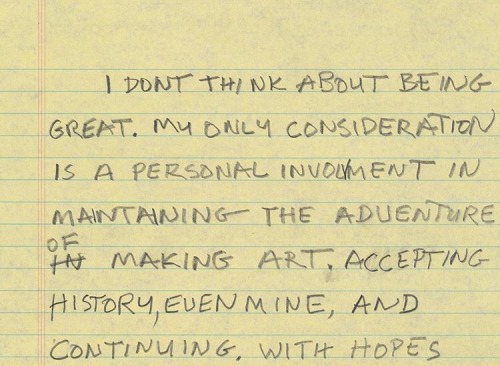 I DONT THINK ABOUT BEING
GREAT. MY ONLY CONSIDERATION
IS A PERSONAL INVOLVMENT IN
MAINTAINING THE ADVENTURE
OF
IN MAKING ART, ACCEPTING
HISTORY, EVEN MINE, AND
CONTINUING. WITH HOPES